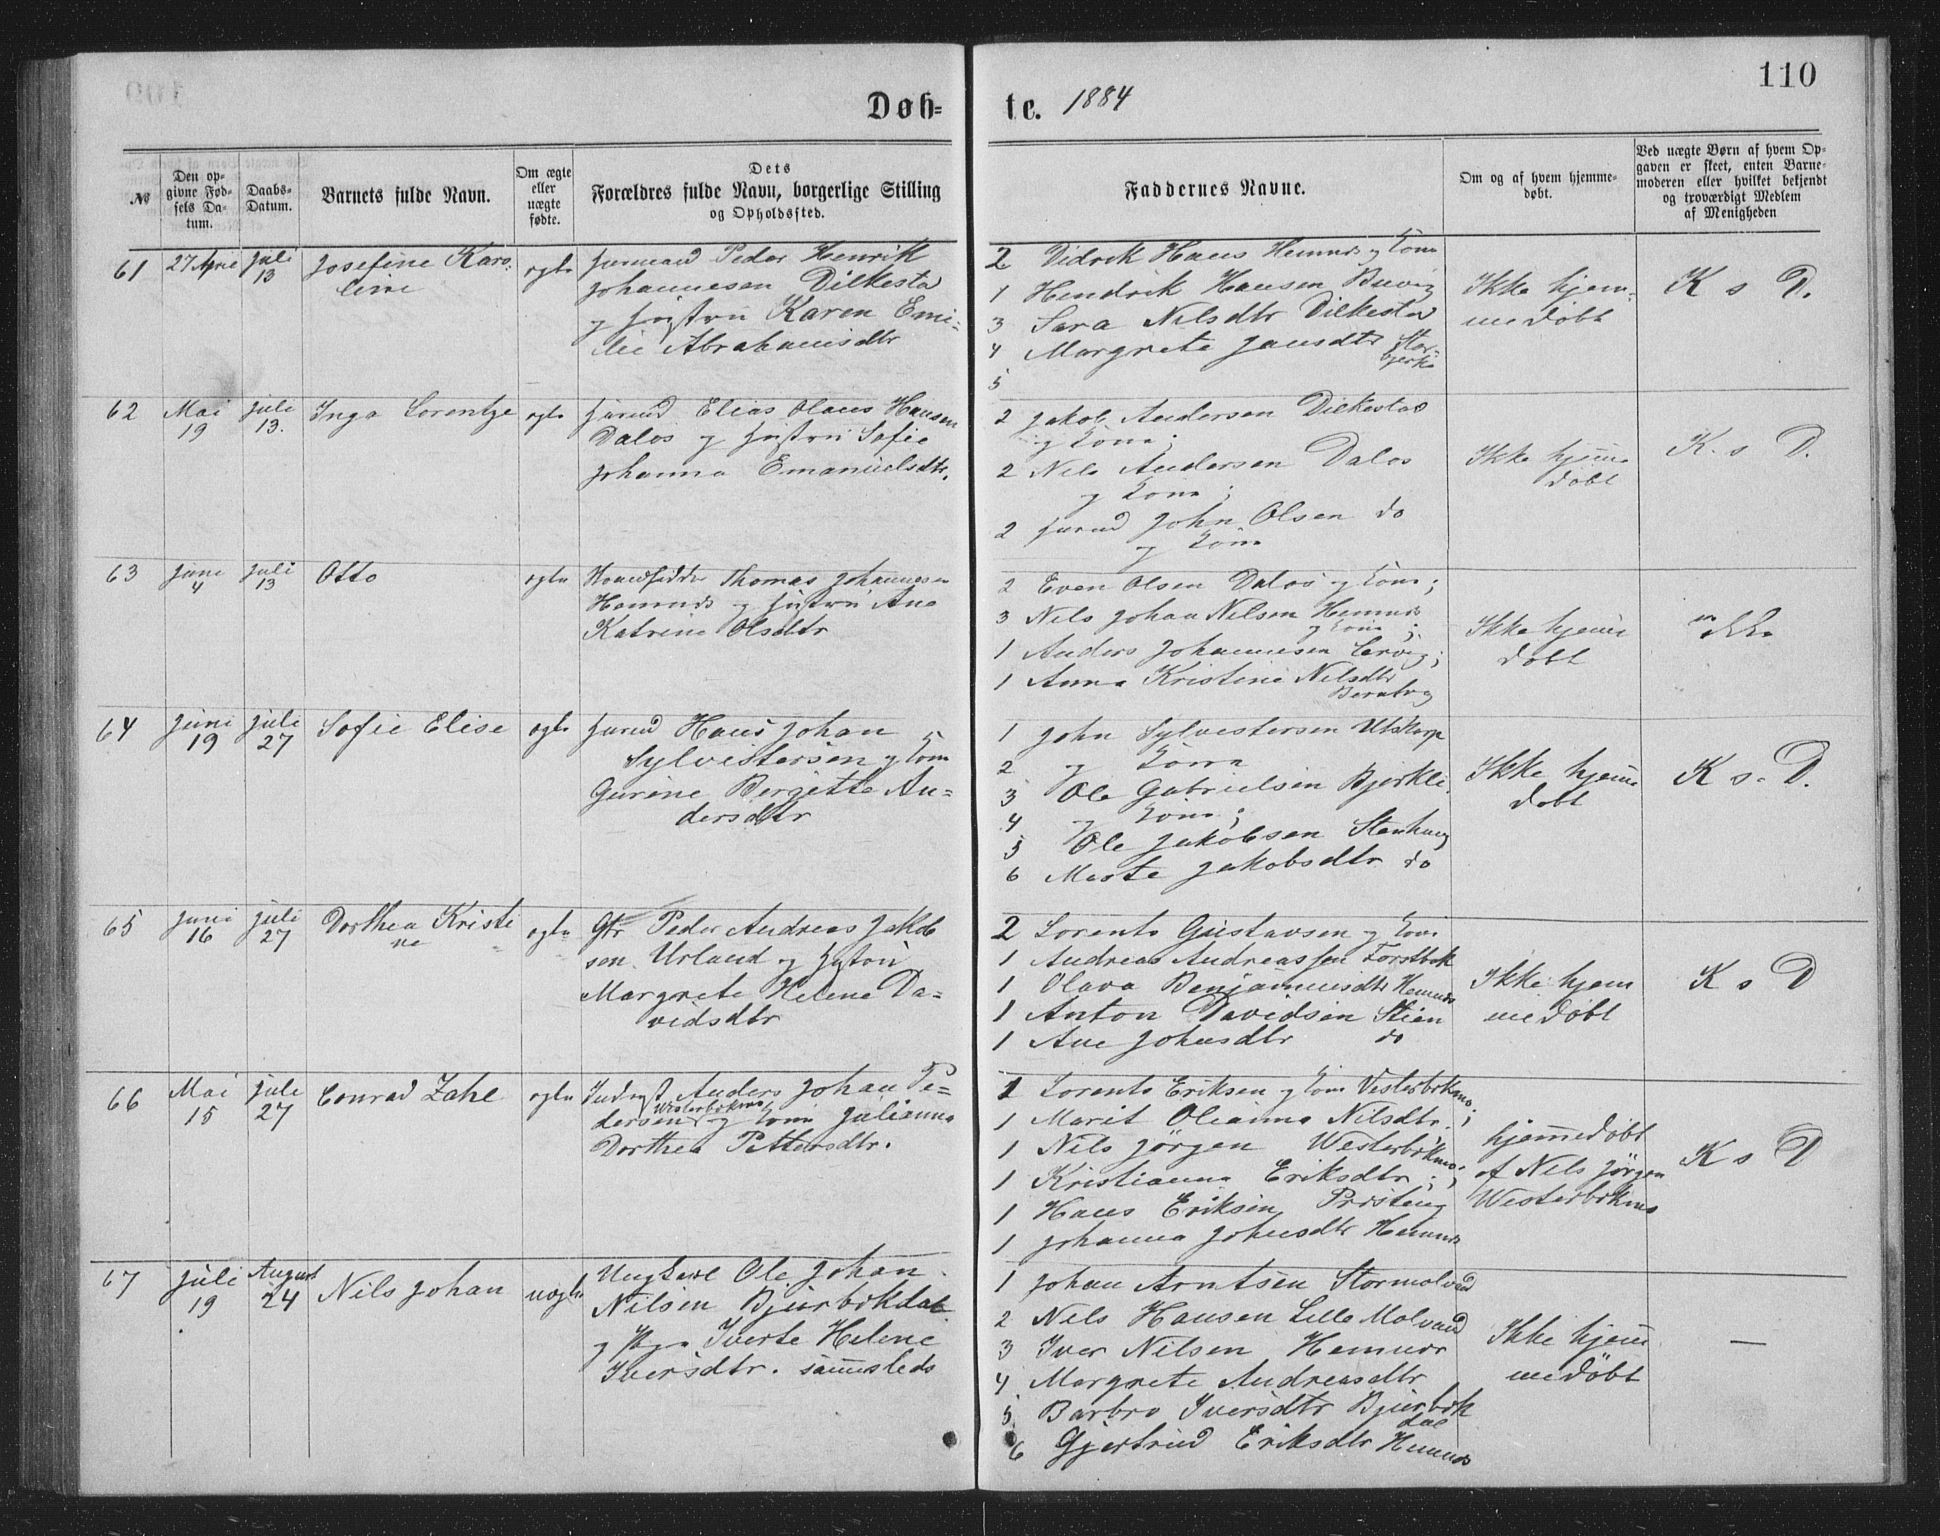 110
Døb=
te. 1884
№
Den op-
givne Fød-
sels Da-
tum.
Daabs-
Datum.
Barnets fulde Navn.
Om ægte
eller
uægte
fødte.
Dets
Forældres fulde Navn, borgerlige Stilling
og Opholdssted.
Faddernes Navne.
Om og af hvem hjemme-
døbt.
Ved uægte Børn af hvem Op-
gaven er skeet, enten Barne-
moderen eller hvilket bekjendt
og troværdigt Medlem
af Menigheden
61 27 April Juli
13
Josefine Karo-
line
ægte
Peder Henrik
Johannesen Dilkestad
og Hustru Karen Emi-
lie Abrahamsdtr
2 Didrik Hans Hemnes og Kone
1 Hendrik Hansen
3 Sara Nilsdtr Dilkestad
4 Margrete Jansdtr
5
Ikke hjem-
medøbt
K s D.
62 Mai
19
Juli
13.
Inga Lorentze
ægte
Elias Olaus Hansen
Dalos og Hustru Sofie
Johanna Emanuelsdtr.
2 Jakob Andersen Dilkestad
og Kone;
2 Nils Andersen Dalos
og Kone;
2 John Olsen do
og Kone
Ikke hjemme
døbt
K. s D.
63 Juni
4
Juli
13
Otto
ægte
Thomas Johannesen
Hemnes og Hustru Ane
Katrine Olsdtr
2 Even Olsen Dalos og Kone;
3 Nils Johan Nilsen Hemnes
og Kone;
1 Anders Johannesen
1 Anna Kristine Nilsdtr
Ikke hjemme
døbt
64 Juni
19
Juli
27
Sofie Elise
ægte
Hans Johan
Sylvestersen og Kone
Gurine Bergitte An=
dersdtr
1 John Sylvestersen Utskarp
2 og Kone
3 Ole Gabrielsen Bjerkli
4 og Kone;
5 Ole Jakobsen Stenhaug
6 Marte Jakobsdtr do
Ikke hjemme
døbt
K s. D.
65 Juni
16
Juli
27
Dorthea Kristi
ne
ægte
Gbr Peder Andreas Jakob
sen Urland og Hustru
Margrete Helene Da=
vidsdtr
2 Lorents Gustavsen og Kone
1 Andreas Andreassen
1 Olava Benjaminsdtr Hemnes
1 Anton Davidsen Stien
1 Ane Johnsdtr do
Ikke hjem
medøbt
K s D
66 Mai
15
Juli
27
Conrad Zahl
ægte
Inderst Anders Johan Pe=
dersen Westerbekmo og Kone Julianna
Dorthea Pettersdtr.
1 Lorents Eriksen og Kone Vesterbekmo;
1 Marit Oleanna Nilsdtr;
1 Nils Jörgen Westerbekmo;
1 Kristianna Eriksdtr;
1 Hans Eriksen Presteng
1 Johanna Johnsdtr Hemnes
hjemmedøbt
af Nils Jörgen
Westerbekmo
K s D
67 Juli
19
August
24
Nils Johan
uægte
Ungkarl Ole Johan
Nilsen Bjurbekdal
og Pige Iverte Helene
Iversdtr. sammesteds
1 Johan Arntsen Stormolvand
2 Nils Hansen Lille Molvand
3 Iver Nilsen Hemnes
4 Margrete Andreasdtr
5 Barbro Iversdtr Bjurbek
dal
6 Gjertrud Eriksdtr Hemnes
Ikke hjem
medøbt
—